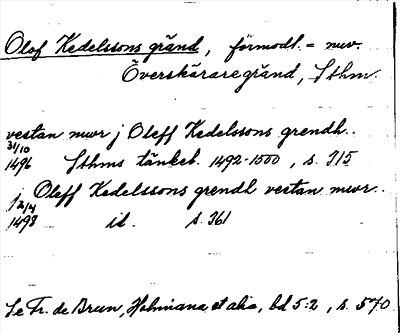 Olof Kedelssons gränd, förmodl. = nuv.
Överskärare gränd, Sthm.
vestan mwr j Oleff Kedelssons grendh..
31/10
1496 Sthms tänkeb. 1492-1500, s. 315
j Oleff Kedelssons grendh vestan mwr..
2/4
1498 id. s. 361
Se Fr. de Brun, Holmiana et alia, bd 5:2, s. 570.